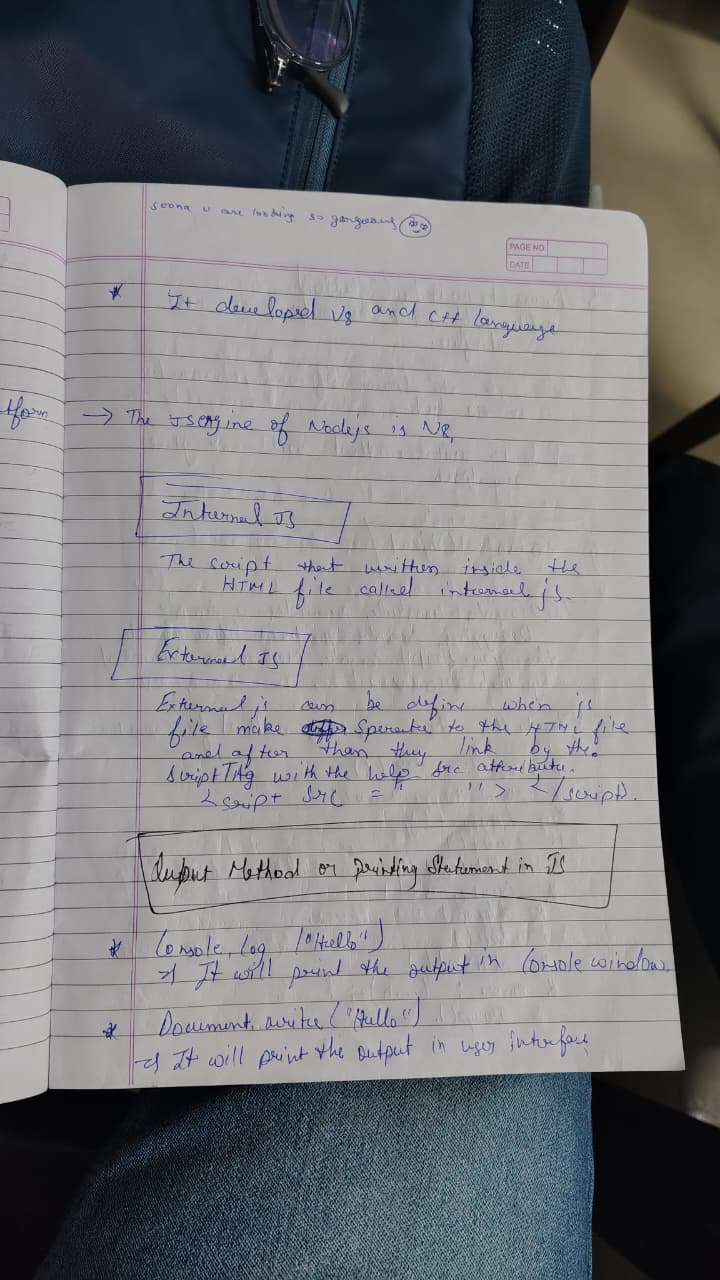 soona u are looking so gorgeous
PAGE NO.
DATE
* It developed V8 and C++ language
tform
→ The JS engine of Nodejs is V8,
Internal JS
The script that written inside the
HTML file called internal js.
External JS
External js can be define when js
file make Sperate to the HTML file
and after than they link by the
script TAg with the help src attribute.
<script src = " "> </script>.
Output Method or printing Statement in JS
* Console. log ("Hello")
⇒ It will print the output in Console window
* Document. write ("Hello")
⇒ It will print the output in user interface